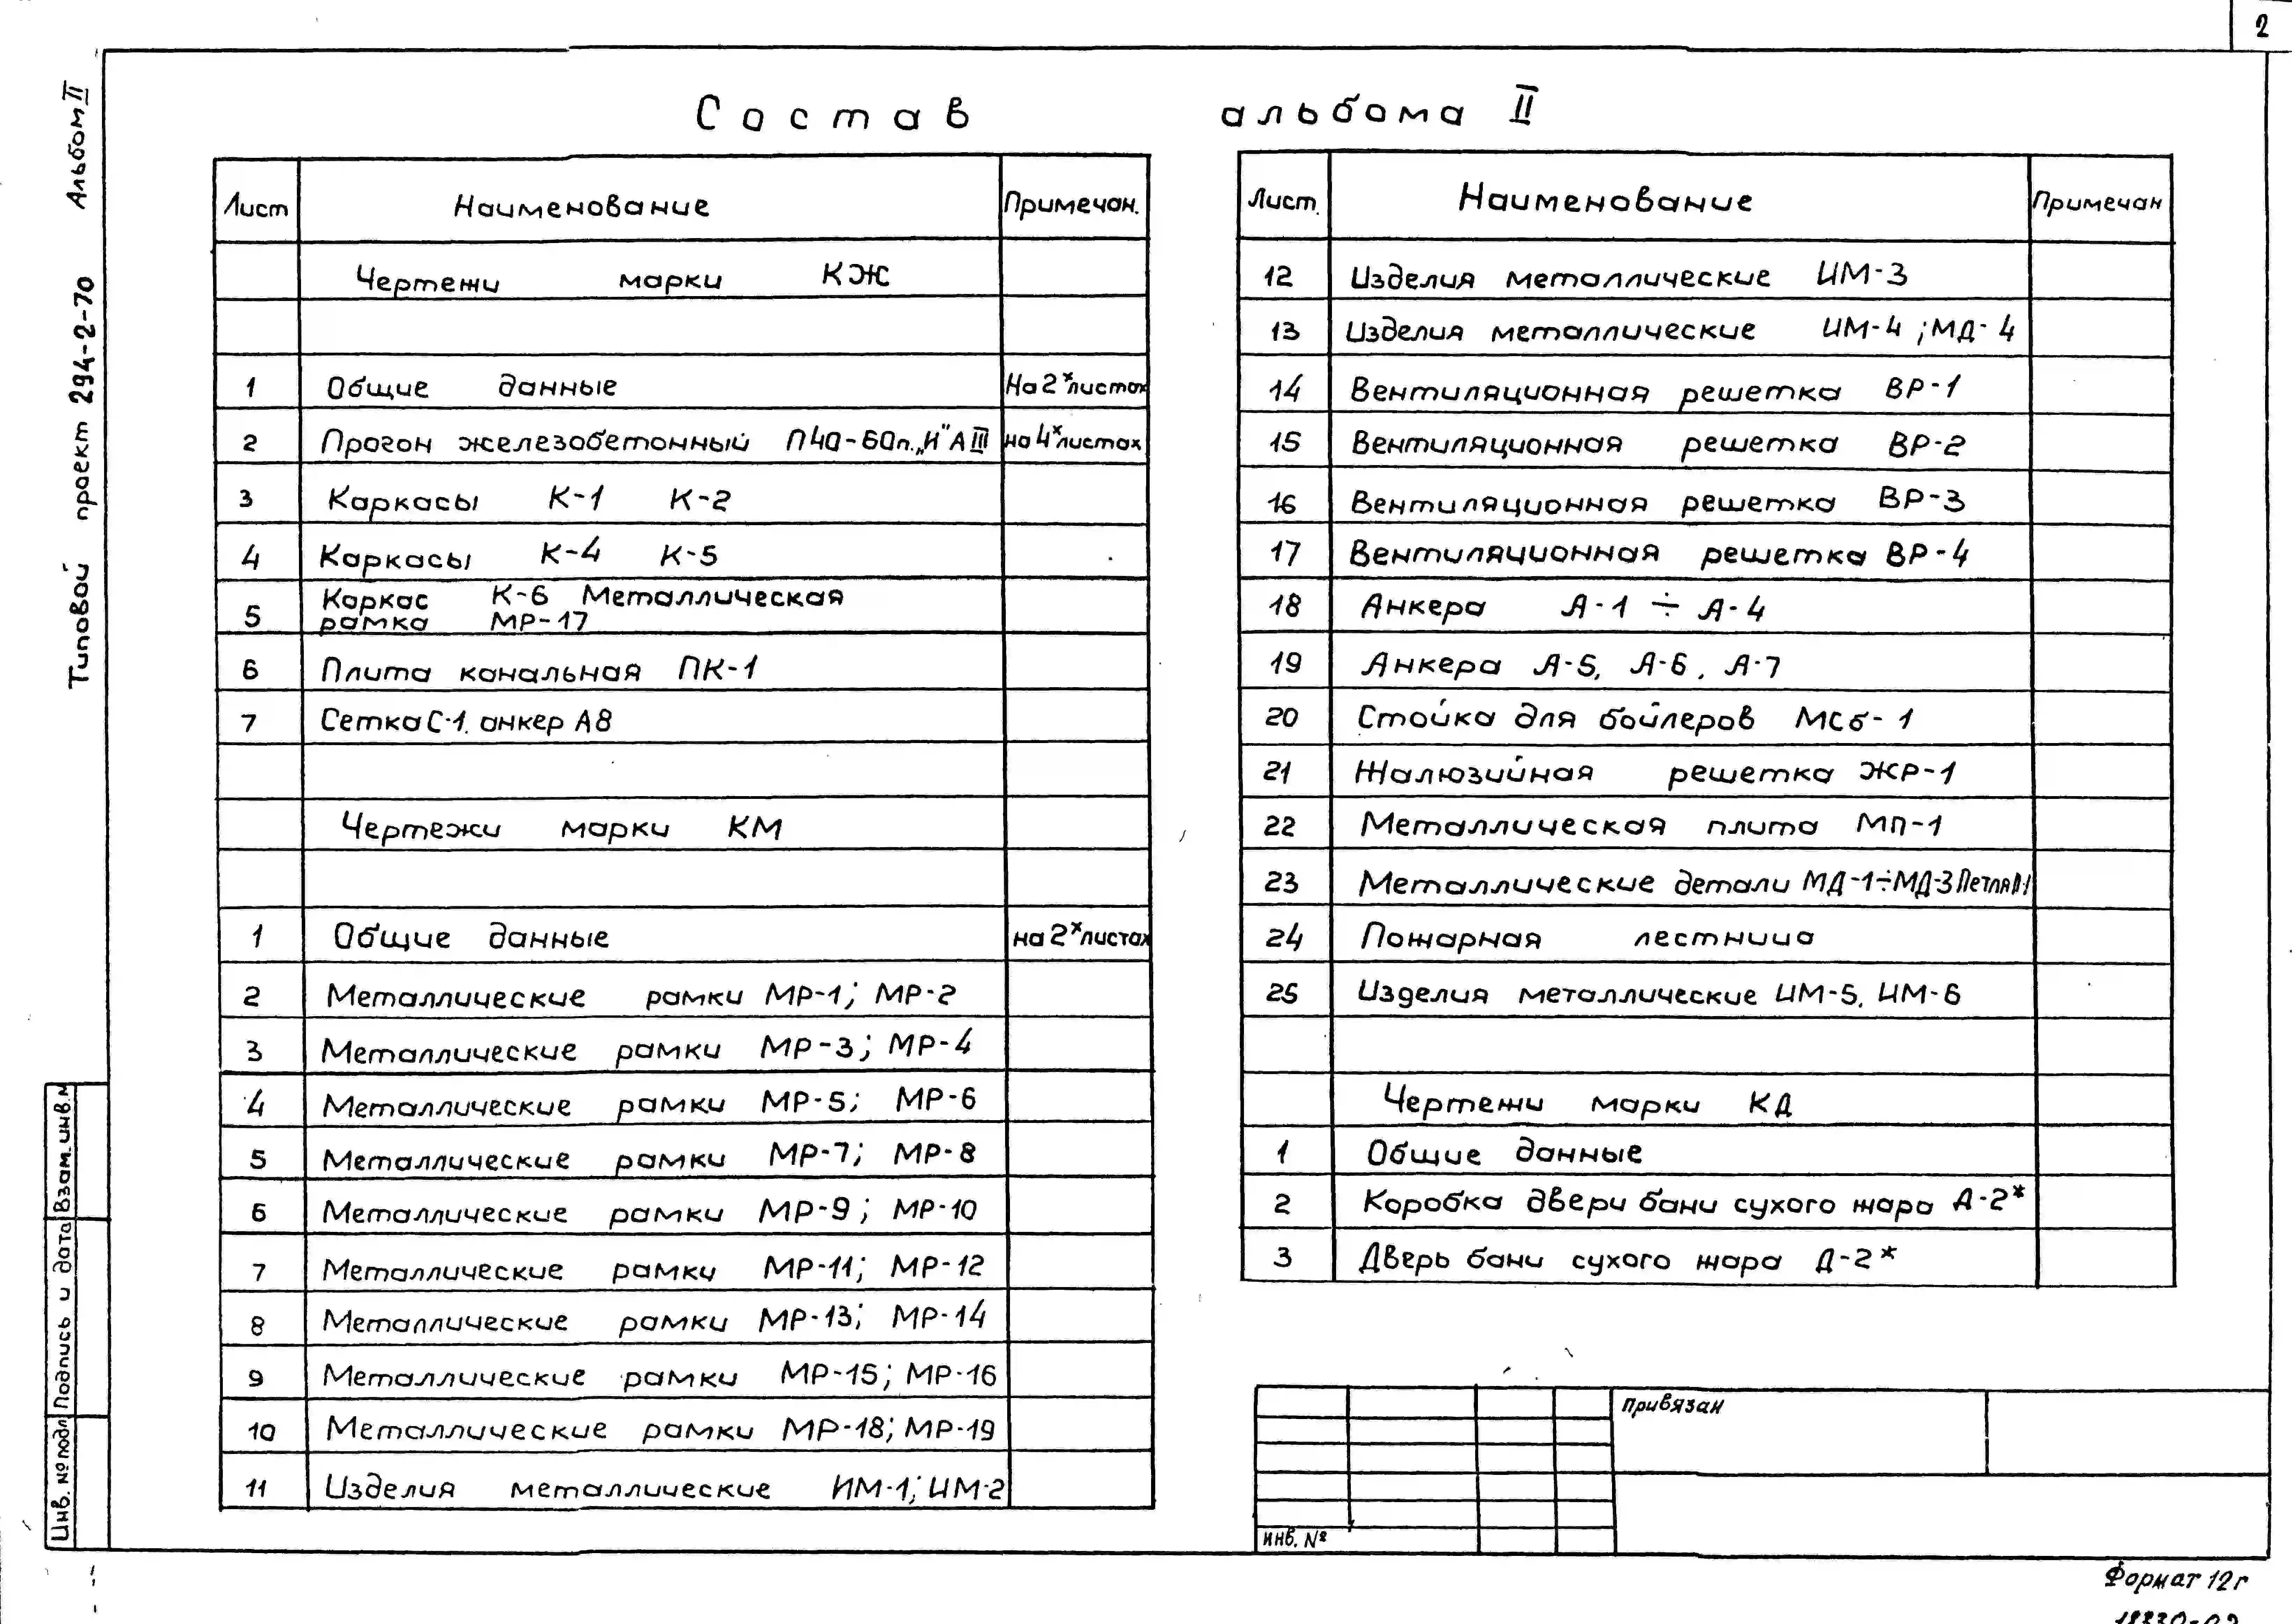 2
Типовой проект 294-2-70 Альбом II
Состав альбома II
Лист Наименование Примечан.
Чертежи марки КЖ
1 Общие данные На 2х листах
2 Прогон железобетонный П40-60п. „И" АIII на 4х листах
3 Каркасы К-1 К-2
4 Каркасы К-4 К-5
5 Каркас К-6 Металлическая
рамка МР-17
6 Плита канальная ПК-1
7 Сетка С-1. анкер А8
Чертежи марки КМ
1 Общие данные на 2х листах
2 Металлические рамки МР-1; МР-2
3 Металлические рамки МР-3; МР-4
4 Металлические рамки МР-5; МР-6
5 Металлические рамки МР-7; МР-8
6 Металлические рамки МР-9; МР-10
7 Металлические рамки МР-11; МР-12
8 Металлические рамки МР-13; МР-14
9 Металлические рамки МР-15; МР-16
10 Металлические рамки МР-18; МР-19
11 Изделия металлические ИМ-1; ИМ-2
Лист. Наименование Примечан
12 Изделия металлические ИМ-3
13 Изделия металлические ИМ-4; МД-4
14 Вентиляционная решетка ВР-1
15 Вентиляционная решетка ВР-2
16 Вентиляционная решетка ВР-3
17 Вентиляционная решетка ВР-4
18 Анкера А-1 ÷ А-4
19 Анкера А-5, А-6, А-7
20 Стойка для бойлеров МСб-1
21 Жалюзийная решетка ЖР-1
22 Металлическая плита МП-1
23 Металлические детали МД-1÷МД-3 Петля П1
24 Пожарная лестница
25 Изделия металлические ИМ-5, ИМ-6
Чертежи марки КД
1 Общие данные
2 Коробка двери бани сухого жара Д-2*
3 Дверь бани сухого жара Д-2*
Инв. № подл Подпись и дата Взам. инв. №
Привязан
инв. №
Формат 12г